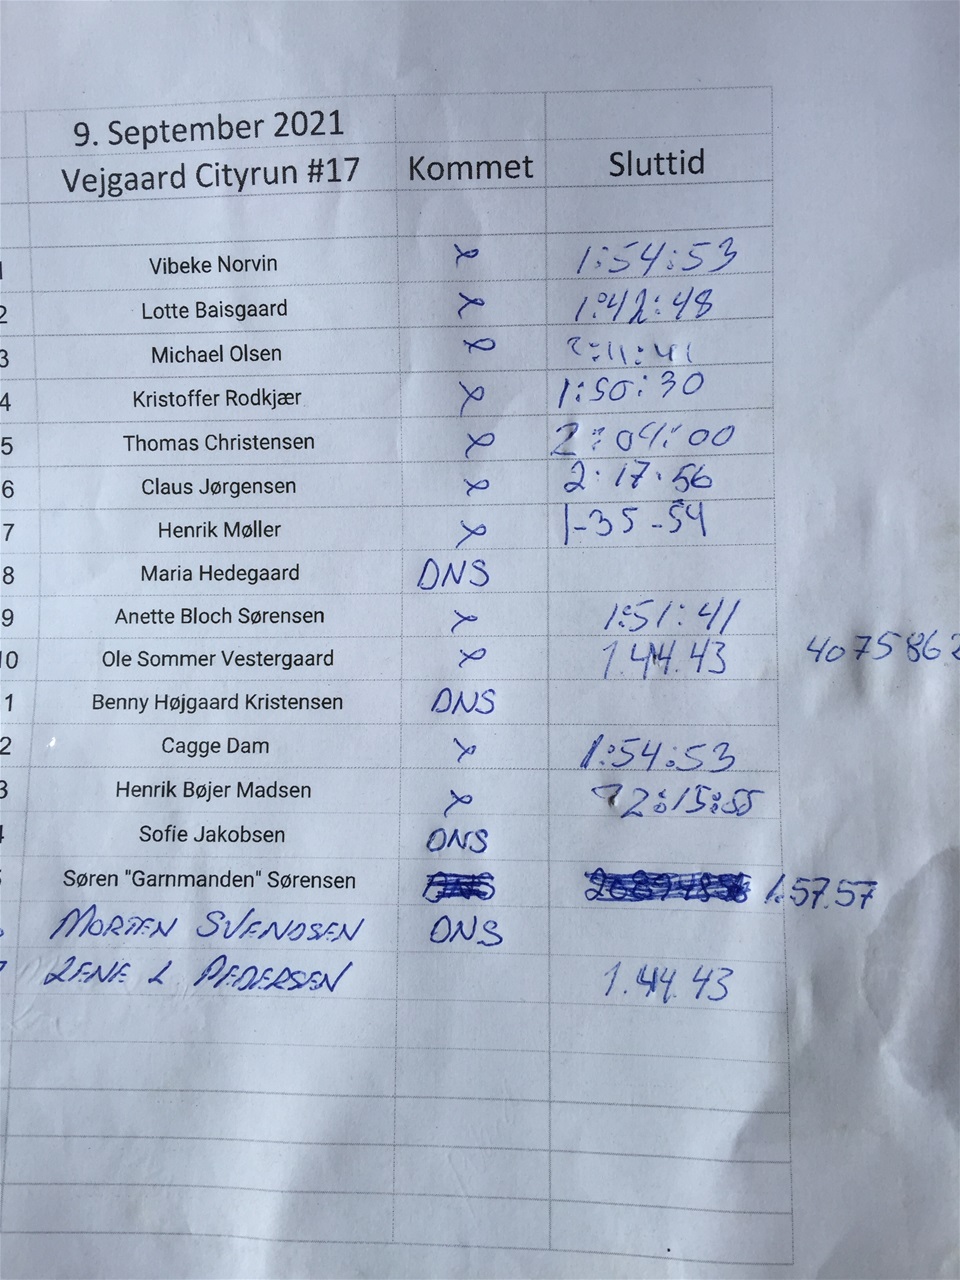 9. September 2021
Vejgaard Cityrun #17 Kommet Sluttid
1 Vibeke Norvin x 1:54:53
2 Lotte Baisgaard x 1:42:48
3 Michael Olsen x 2:11:41
4 Kristoffer Rodkjær x 1:50:30
5 Thomas Christensen x 2:04:00
6 Claus Jørgensen x 2:17:56
7 Henrik Møller x 1-35-54
8 Maria Hedegaard DNS
9 Anette Bloch Sørensen x 1:51:41
10 Ole Sommer Vestergaard x 1.44.43 4075862
1 Benny Højgaard Kristensen DNS
2 Cagge Dam x 1:54:53
3 Henrik Bøjer Madsen x 2:15:55
4 Sofie Jakobsen DNS
Søren "Garnmanden" Sørensen 1.57.57
MORTEN SVENDSEN DNS
7 LENE L PEDERSEN 1.44.43